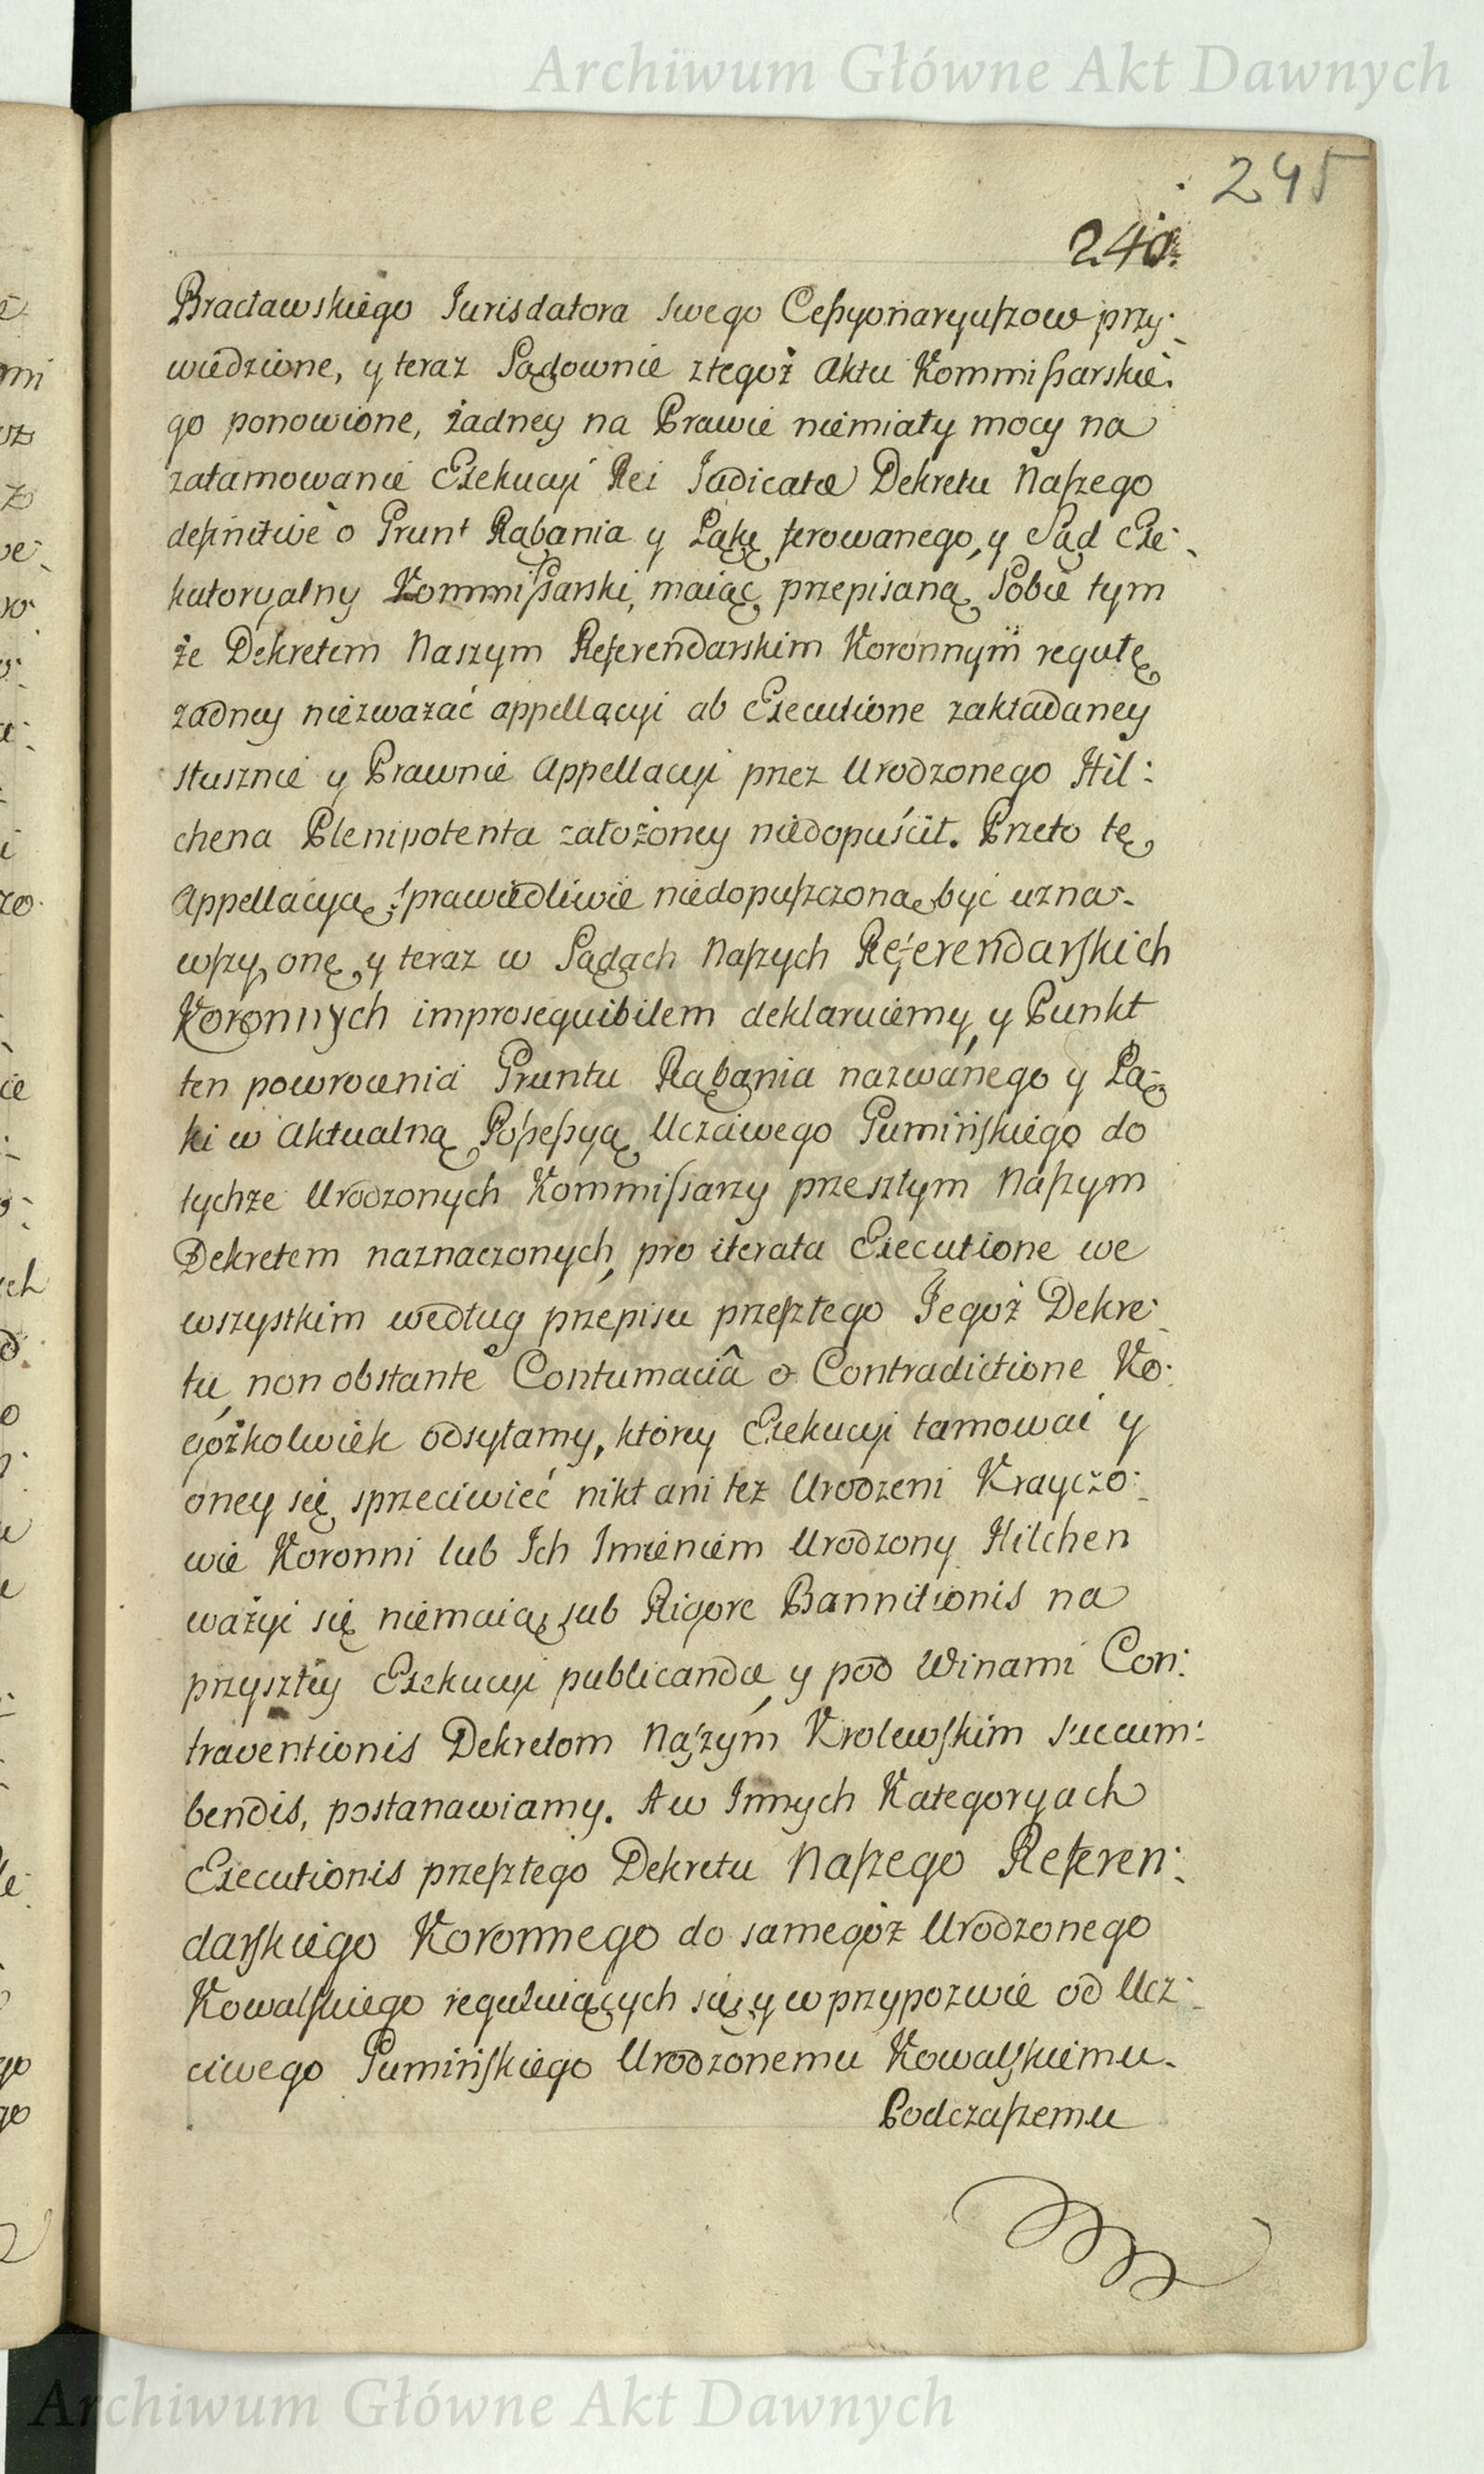 Archiwum Główne Akt Dawnych
245
240.
Bracławskiego Jurisdatora swego Cessyonaryuszow przy-
wiedzione, y teraz Sądownie z tegoż Aktu Kommissarskie-
go ponowione, żadney na Prawie niemiały mocy na
zatamowanie Exekucyi Rei Judicatæ Dekretu Naszego
definitive o Grunt Rąbania y Łąkę ferowanego, y Sąd Exe-
kutoryalny Kommissarski, maiąc przepisaną Sobie tym
że Dekretem Naszym Referendarskim Koronnym regułę
żadney niezważać appellacyi ab Executione zakładaney
słusznie y Prawnie Appellacyi przez Urodzonego Hil-
chena Plenipotenta założoney niedopuścił. Przeto tę
Appellacyą sprawiedliwie niedopuszczoną być uzna-
wszy, onę y teraz w Sądach Naszych Referendarskich
Koronnych improsequibilem deklaruiemy, y Punkt
ten powrocenia Gruntu Rąbania nazwanego y Łą-
ki w Aktualną Possessyą Uczciwego Gumińskiego do
tychże Urodzonych Kommissarzy przeszłym Naszym
Dekretem naznaczonych, pro iterata Executione we
wszystkim według przepisu przeszłego Jegoż Dekre-
tu, non obstante Contumaciâ & Contradictione Ko-
gożkolwiek odsyłamy, ktorey Exekucyi tamować y
oney się sprzeciwieć nikt ani też Urodzeni Krayczo-
wie Koronni lub Ich Imieniem Urodzony Hilchen
ważyć się niemaią sub Rigore Bannitionis na
przyszłey Exekucyi publicandæ, y pod Winami Con-
traventionis Dekretom Naszym Krolewskim succum-
bendis, postanawiamy. A w Innych Kategoryach
Executionis przeszłego Dekretu Naszego Referen-
darskiego Koronnego do samegoż Urodzonego
Kowalskiego reguluiących się, y w przypozwie od Ucz-
ciwego Gumińskiego Urodzonemu Kowalskiemu
Podczaszemu
Archiwum Główne Akt Dawnych